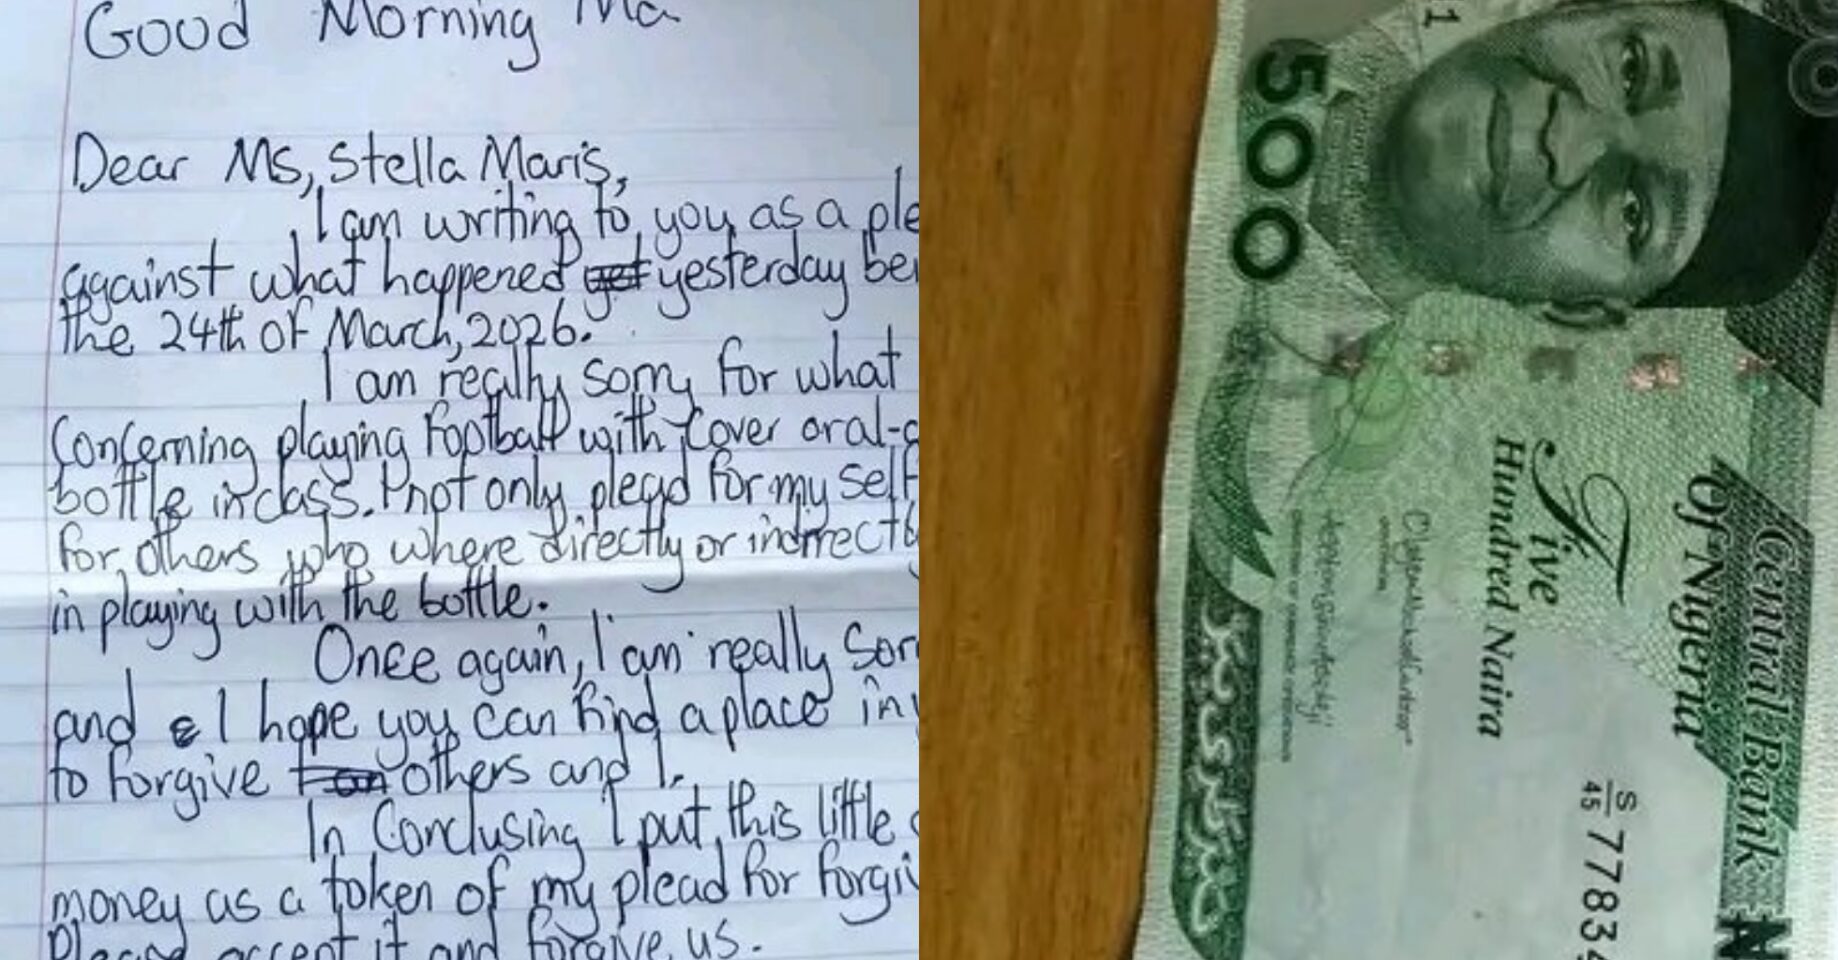 Good Morning Ma
Dear Ms, Stella Maris,
I am writing to you as a ple
against what happened yesterday be
the 24th of March, 2026.
I am really sorry for what
Concerning playing football with cover oral-
bottle in class. I not only plead for my self
for others who where directly or indirectly
in playing with the bottle.
Once again, I am really Sor
and I hope you can find a place in
to forgive others and I.
In Conclusing I put this little
money as a token of my plead for forgi
Please accept it and forgive us.
500
Five
Hundred Naira
Central Bank
Of Nigeria
S/45 77834